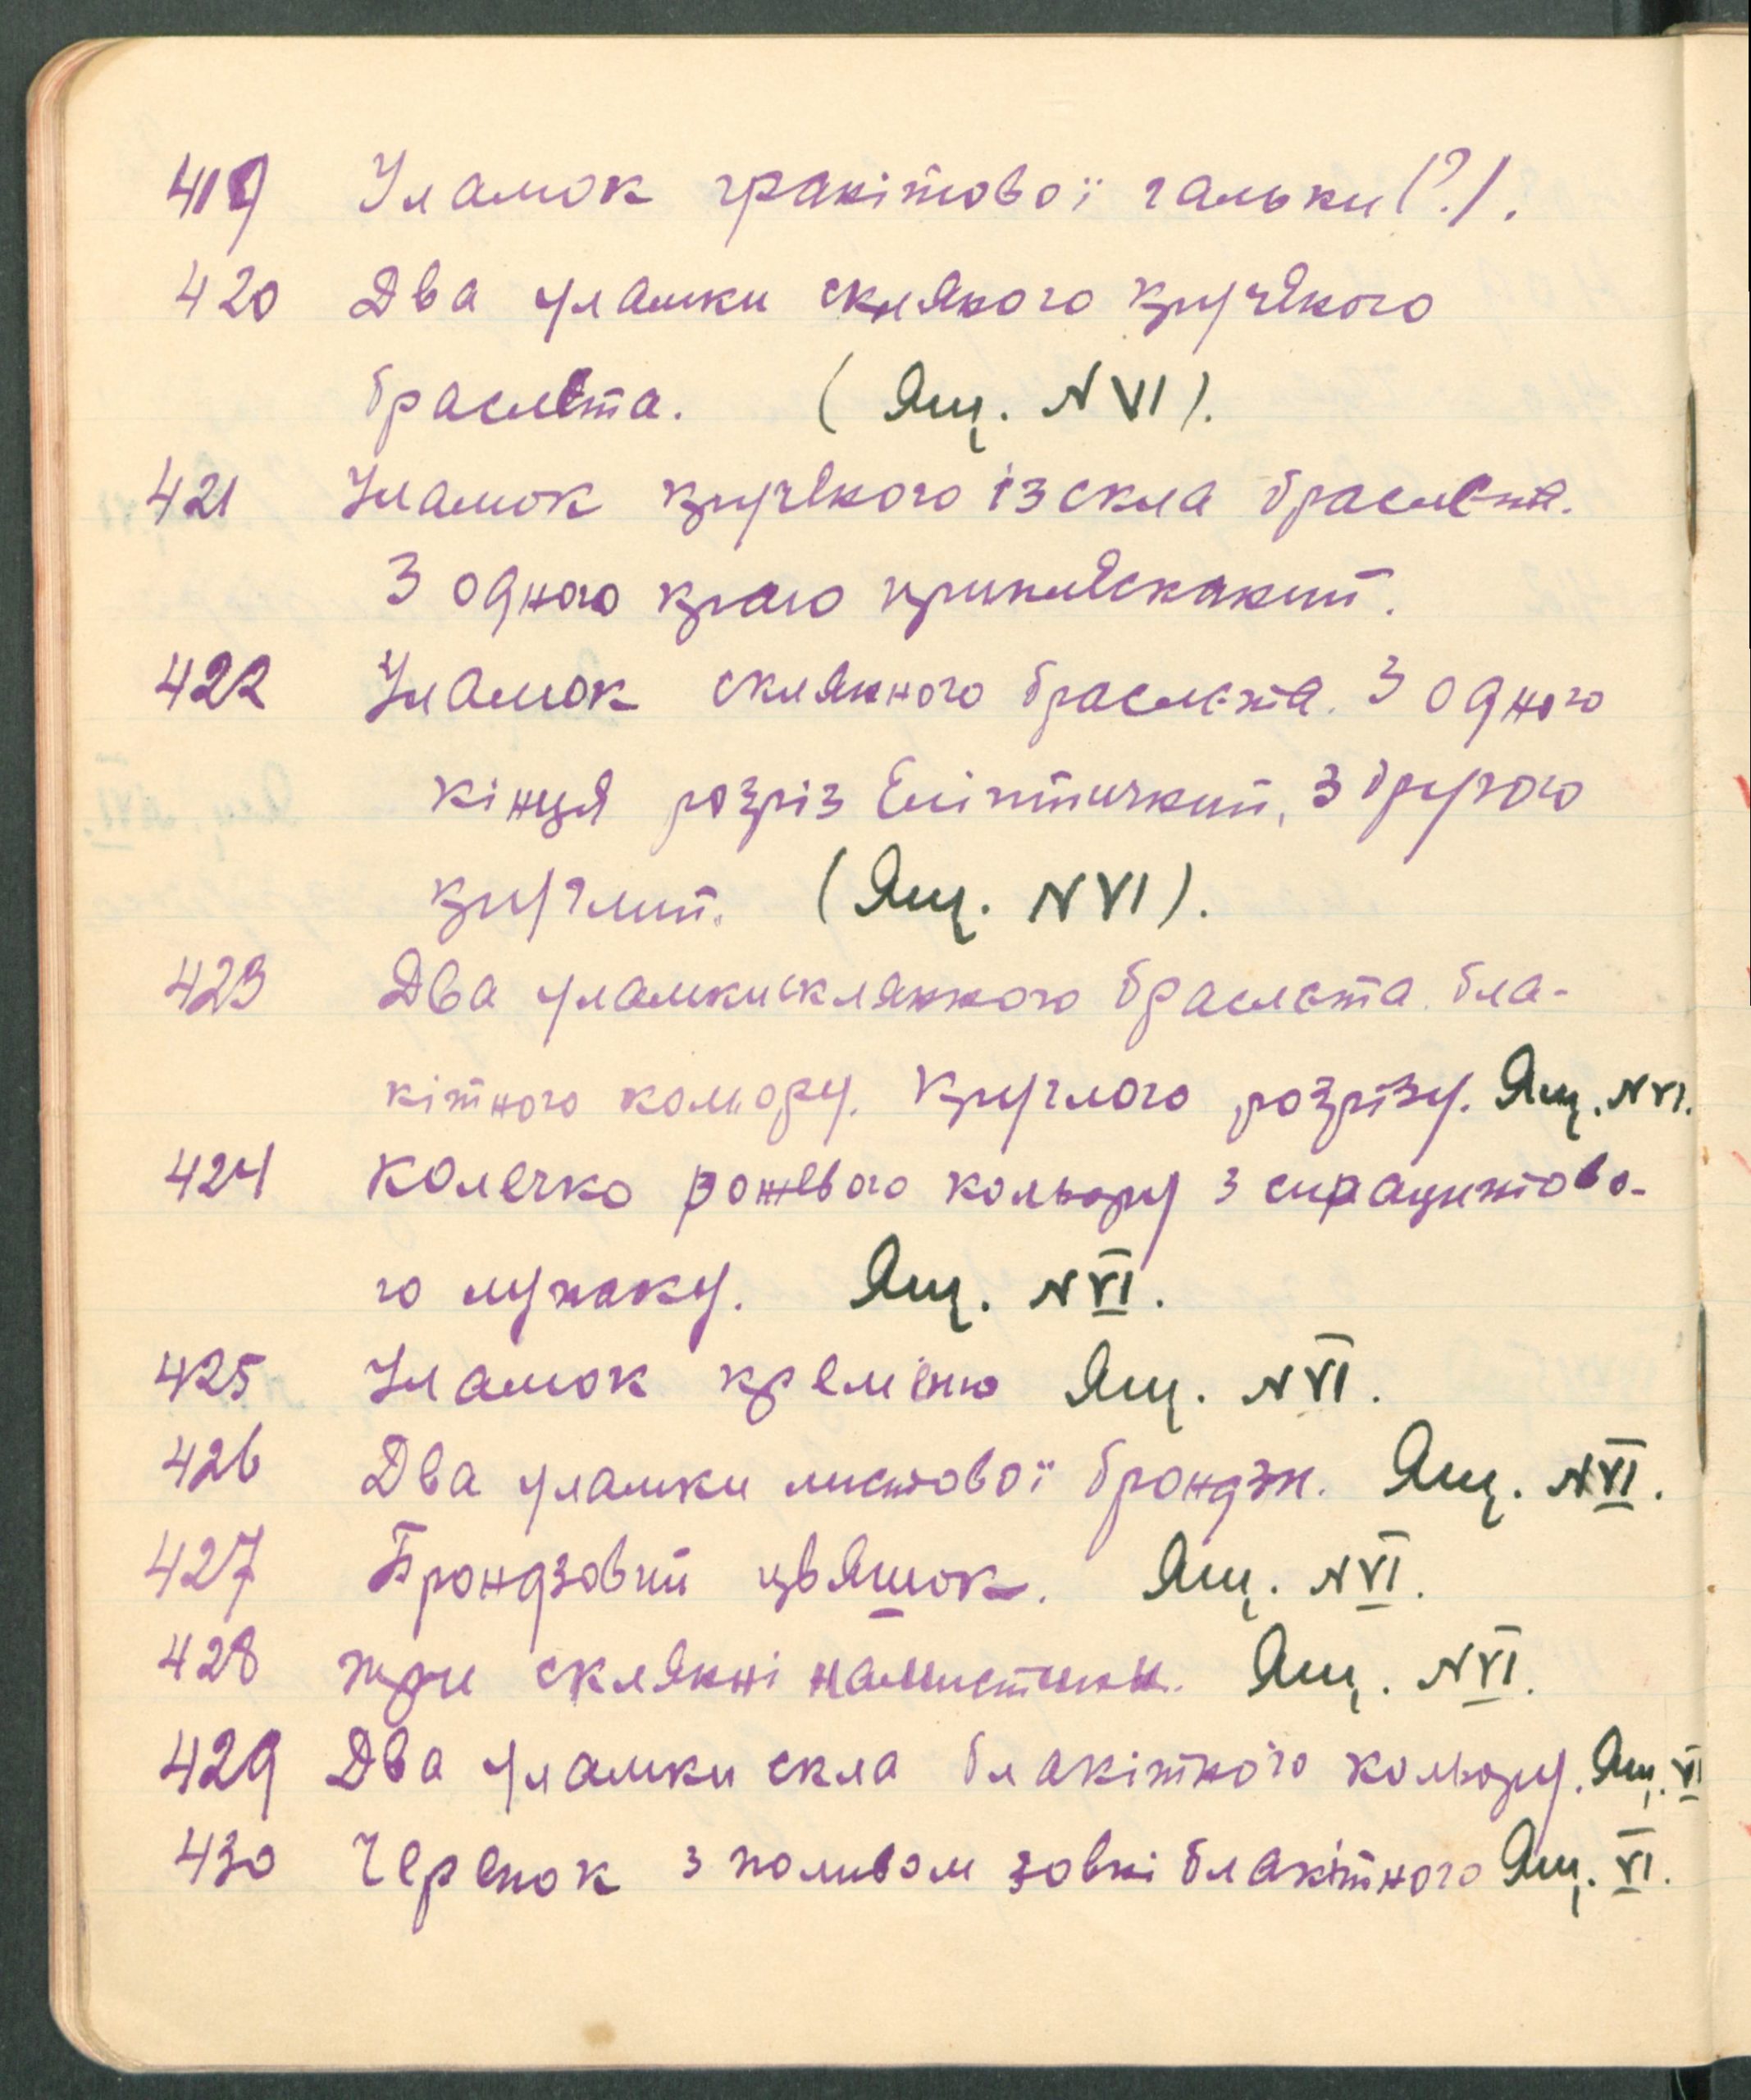 419 Уламок гранітової гальки (?).
420 Два уламки скляного крученого
браслета. (Ящ. N VI).
421 Уламок крученого із скла браслета.
З одного краю приплясканий.
422 Уламок склянного браслета. З одного
кінця розріз Еліптичний, з другого
круглий. (Ящ. N VI).
423 Два уламки склянного браслета бла-
кітного кольору. Круглого розрізу. Ящ. N VI.
424 Колечко рожевого кольору з
го лупаку. Ящ. N VI.
425 Уламок креміню Ящ. N VI.
426 Два уламки листової брондзи. Ящ. N VI.
427 Брондзовий цвяшок. Ящ. N VI.
428 три склянні намистини. Ящ. N VI.
429 Два уламки скла блакітного кольору. Ящ. VI
430 Черепок з поливом зовні блакітного Ящ. VI.